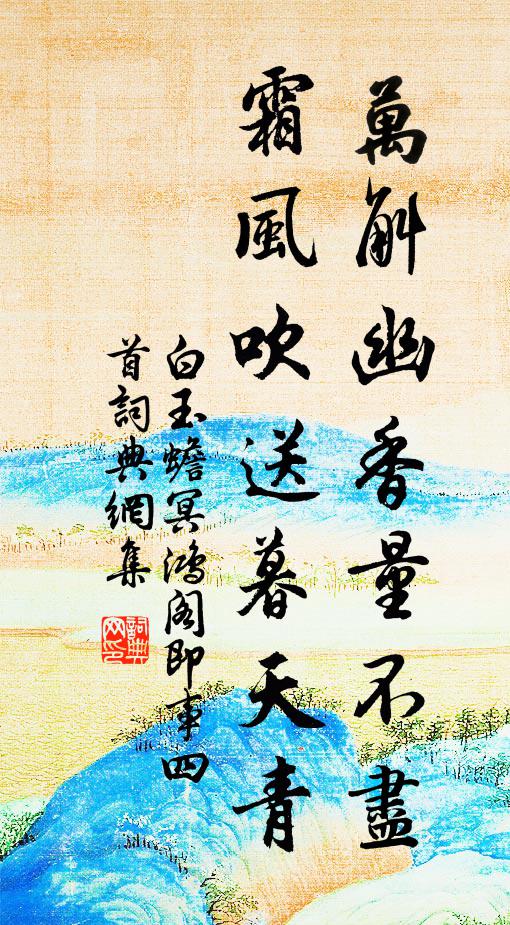 萬斛幽香量不盡
霜風吹送暮天青
白玉蟾冥鴻閣即事四
首詞典網集
詞典
网印